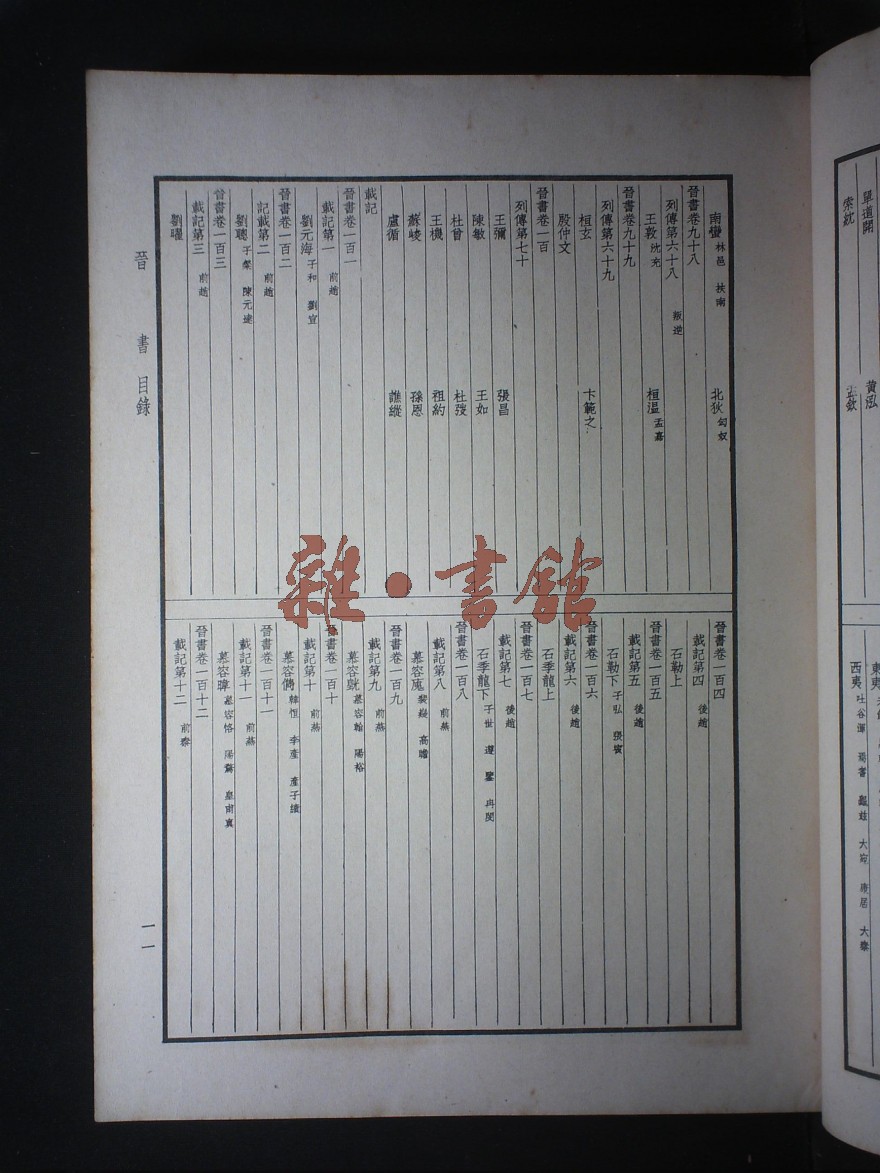 單道開 黃泓
索紞
西夷 吐谷渾 焉耆 龜玆 大宛 康居 大秦
南蠻 林邑 扶南 北狄 匈奴
晉書卷九十八
列傳第六十八 叛逆
王敦 沈充 桓溫 孟嘉
晉書卷九十九
列傳第六十九
桓玄 卞範之
殷仲文
晉書卷一百
列傳第七十
王彌 張昌
陳敏 王如
杜曾 杜弢
王機 祖約
蘇峻 孫恩
盧循 譙縱
載記
晉書卷一百一
載記第一 前趙
劉元海 子和 劉宣
晉書卷一百二
記載第二 前趙
劉聰 子粲 陳元達
晉書卷一百三
載記第三 前趙
劉曜
晉書卷一百四
載記第四 後趙
石勒上
晉書卷一百五
載記第五 後趙
石勒下 子弘 張賓
晉書卷一百六
載記第六 後趙
石季龍上
晉書卷一百七
載記第七 後趙
石季龍下 子世 遵 鑒 冉閔
晉書卷一百八
載記第八 前燕
慕容廆 裴嶷 高瞻
晉書卷一百九
載記第九 前燕
慕容皝 慕容翰 陽裕
晉書卷一百十
載記第十 前燕
慕容儁 韓恒 李產 產子績
晉書卷一百十一
載記第十一 前燕
慕容暐 慕容恪 陽騖 皇甫真
晉書卷一百十二
載記第十二 前秦
晉書 目錄
一一
雜·書館